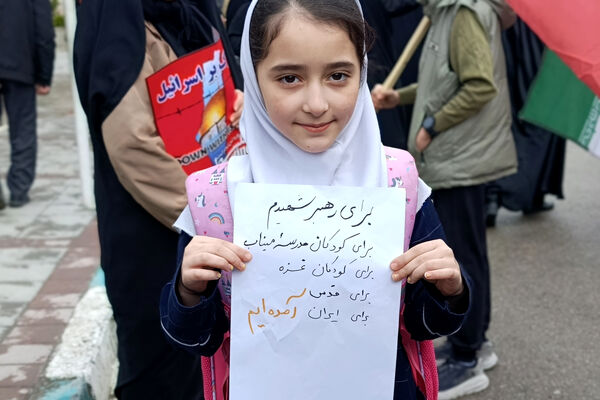 بر اسرائیل
DOWN WITH
برای رهبر شهیدم
برای کودکان مدرسهٔ میناب
برای کودکان غزه
برای قدس
برای ایران آمده‌ایم